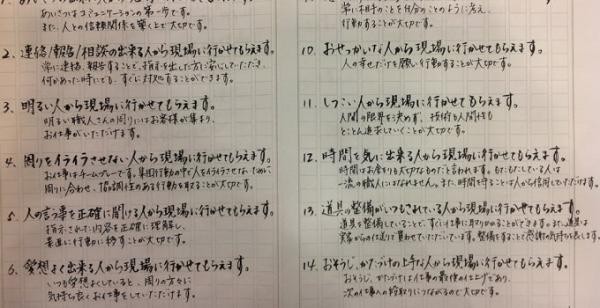 あいさつはコミュニケーションの第一歩です。
また、人との信頼関係を築く上で大切です。
2. 連絡/報告/相談の出来る人から現場に行かせてもらえます。
常に連絡、報告することで、指示を出した方に安心していただき、
何かあった時にでも、すぐに対処することができます。
3. 明るい人から現場に行かせてもらえます。
明るい職人さんの周りにはお客様が集まり、
お仕事がいただけます。
4. 周りをイライラさせない人から現場に行かせてもらえます。
お仕事はチームプレーです。集団行動の中で人をイライラさせないために、
周りに合わせ、協調性のある行動を取ることが大切です。
5. 人の言う事を正確に聞ける人から現場に行かせてもらえます。
指示された内容を正確に理解し、
素直に行動に移すことが大切です。
6. 愛想よく出来る人から現場に行かせてもらえます。
いつも愛想よくしていると、周りの方々に
気持ち良くお仕事をしていただけます。
常に相手のことを自分のことのように考え、
行動することが大切です。
10. おせっかいな人から現場に行かせてもらえます。
人の幸せだけを願い行動することが大切です。
11. しつこい人から現場に行かせてもらえます。
人間の限界を決めず、技術も人間性も
とことん追求していくことが大切です。
12. 時間を気に出来る人から現場に行かせてもらえます。
時間はお金よりも大切なものだと言われます。もたもたしている人は
一流の職人にはなれません。また時間を守ることは人から信用していただけます。
13. 道具の整備がいつもされている人から現場に行かせてもらえます。
道具を整備していることで、すぐに仕事に取りかかることができます。また、道具は
会社からの仕送りで買わせていただいています。整備をすることで感謝の気持ちを表します。
14. おそうじ、かたづけの上手な人から現場に行かせてもらえます。
おそうじ、かたづけは仕事の最後の仕上げであり、
次の仕事への段取りにつながるので大切です。